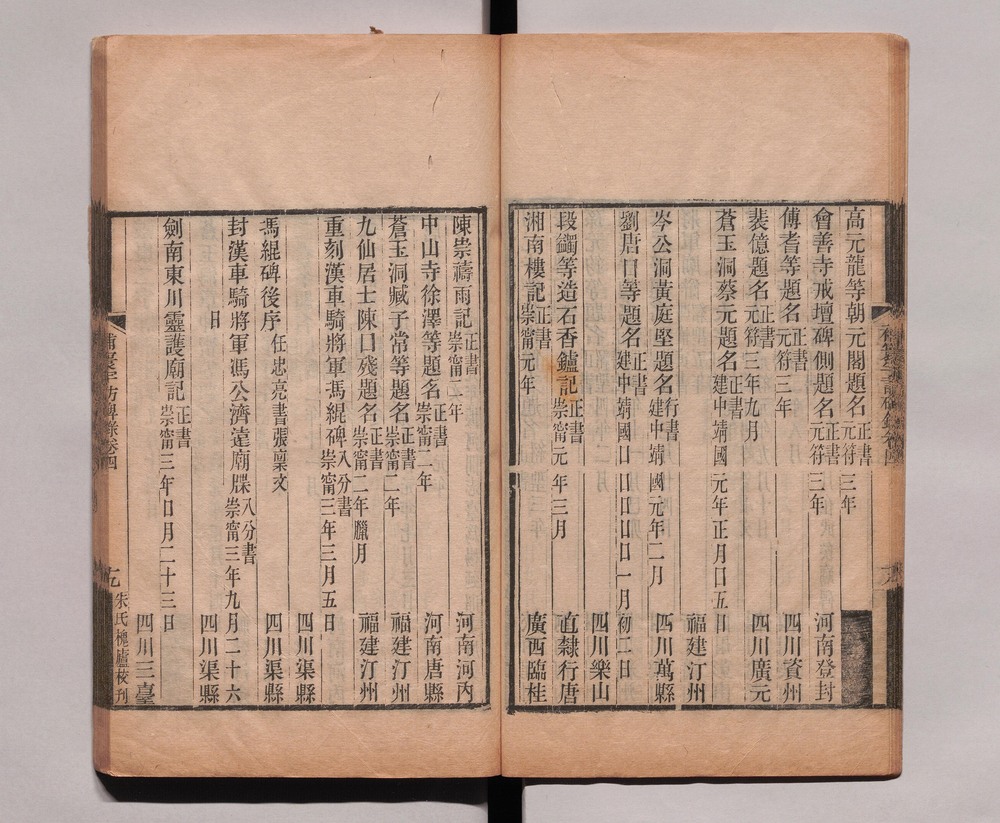 高元龍等朝元閣題名正書元符三年
會善寺戒壇碑側題名正書元符三年 河南登封
傅耆等題名正書元符三年 四川資州
裴億題名正書元符三年九月 四川廣元
蒼玉洞蔡元題名正書建中靖國元年正月囗五日 福建汀州
岑公洞黃庭堅題名行書建中靖國元年二月 四川萬縣
劉唐囗等題名正書建中靖國囗囗囗囗囗一月初二日
四川樂山
段鐲等造石香鑪記正書崇甯元年三月 直隸行唐
湘南樓記正書崇甯元年 廣西臨桂
陳崇禱雨記正書崇甯二年 河南河內
中山寺徐澤等題名正書崇甯二年 河南唐縣
蒼玉洞臧子常等題名正書崇甯二年 福建汀州
九仙居士陳囗殘題名正書崇甯二年臘月 福建汀州
重刻漢車騎將軍馮緄碑八分書崇甯三年三月五日
四川渠縣
馮緄碑後序任忠亮書張稟文 四川渠縣
封漢車騎將軍馮公濟遠廟牒八分書崇甯三年九月二十六
日 四川渠縣
劍南東川靈護廟記正書崇甯三年囗月二十三日
四川三臺
補寰宇訪碑錄卷四
朱氏槐廬校刊